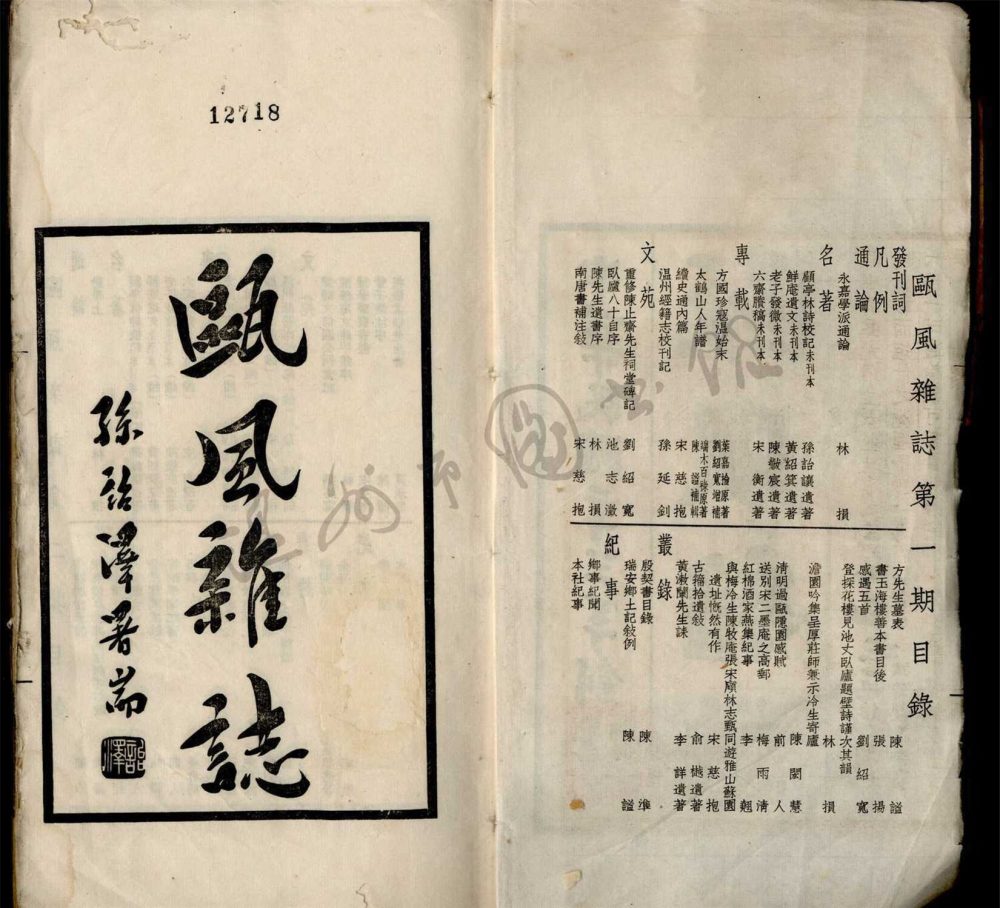 12718
甌風雜誌
孫詒澤署耑
甌風雜誌第一期目錄
發刊詞
凡例
通論
永嘉學派通論 林損
名著
顧亭林詩校記未刊本 孫詒讓遺著
鮮庵遺文未刊本 黃紹箕遺著
老子發微未刊本 陳黻宸遺著
六齋賸稿未刊本 宋衡遺著
專載
方國珍寇溫始末 葉嘉掄原著 劉紹寬增補
太鶴山人年譜 端木百祿原著 陳謐補輯
續史通內篇 宋慈抱
溫州經籍志校刊記 孫延釗
文苑
重修陳止齋先生祠堂碑記 劉紹寬
臥廬八十自序 池志澂
陳先生遺書序 林損
南唐書補注敍 宋慈抱
方先生墓表 陳謐
書玉海樓善本書目後 張揚
感遇五首 劉紹寬
登探花樓見池丈臥廬題壁詩謹次其韻
澹園吟集呈厚莊師兼示冷生寄廬 林損
清明過甌隱園感賦 陳閎慧
送別宋二墨庵之高郵 前人
紅棉酒家燕集紀事 梅雨清
與梅冷生陳牧庵張宋廎林志甄同遊雅山蘇園遺址慨然有作 李翹
叢錄
古籀拾遺敍 宋慈抱
黃漱蘭先生誄 俞樾遺著
李詳遺著
殷契書目錄 陳準
瑞安鄉土記敍例 陳謐
紀事
鄉事紀聞
本社紀事